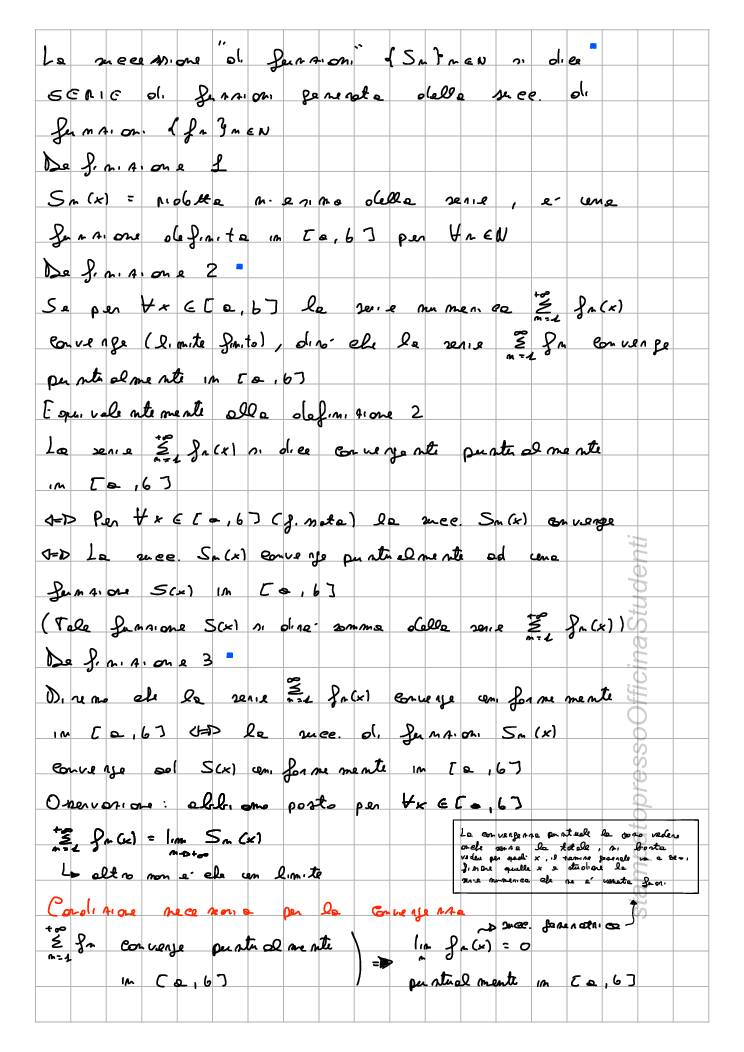 La successione "di funzioni" {Sn}n∈N si dice
SERIE di funzioni generata dalla succ. di
funzioni {fn}n∈N
Definizione 1
Sn(x) = ridotta n-esima della serie, e' una
funzione definita in [a,b] per ∀n∈N
Definizione 2
Se per ∀x∈[a,b] la serie numerica +∞Σn=1 fn(x)
converge (limite finito), diro' che la serie ∞Σn=1 fn converge
puntualmente in [a,b]
Equivalentemente alla definizione 2
La serie +∞Σn=1 fn(x) si dice convergente puntualmente
in [a,b]
<=> Per ∀x∈[a,b] (fissata) la succ. Sn(x) converge
<=> La succ. Sn(x) converge puntualmente ad una
funzione S(x) in [a,b]
(Tale funzione S(x) si dira' somma della serie +∞Σn=1 fn(x))
Definizione 3
Diremo che la serie ∞Σn=1 fn(x) converge uniformemente
in [a,b] <=> la succ. di funzioni Sn(x)
converge ad S(x) uniformemente in [a,b]
Osservazione: abbiamo posto per ∀x∈[a,b]
+∞Σn=1 fn(x) = lim n→+∞ Sn(x)
↳ altro non e' che un limite
La convergenza puntuale la posso vedere
anche senza la totale, mi basta
vedere per quali x, il termine generale va a zero,
fissare quelle x e studiare la
serie numerica che ne e'
Condizione necessaria per la convergenza
→ succ. generatrice
+∞Σn=1 fn converge puntualmente ) => lim n fn(x) = 0
in [a,b] puntualmente in [a,b]
stampatopressoOfficinaStudenti